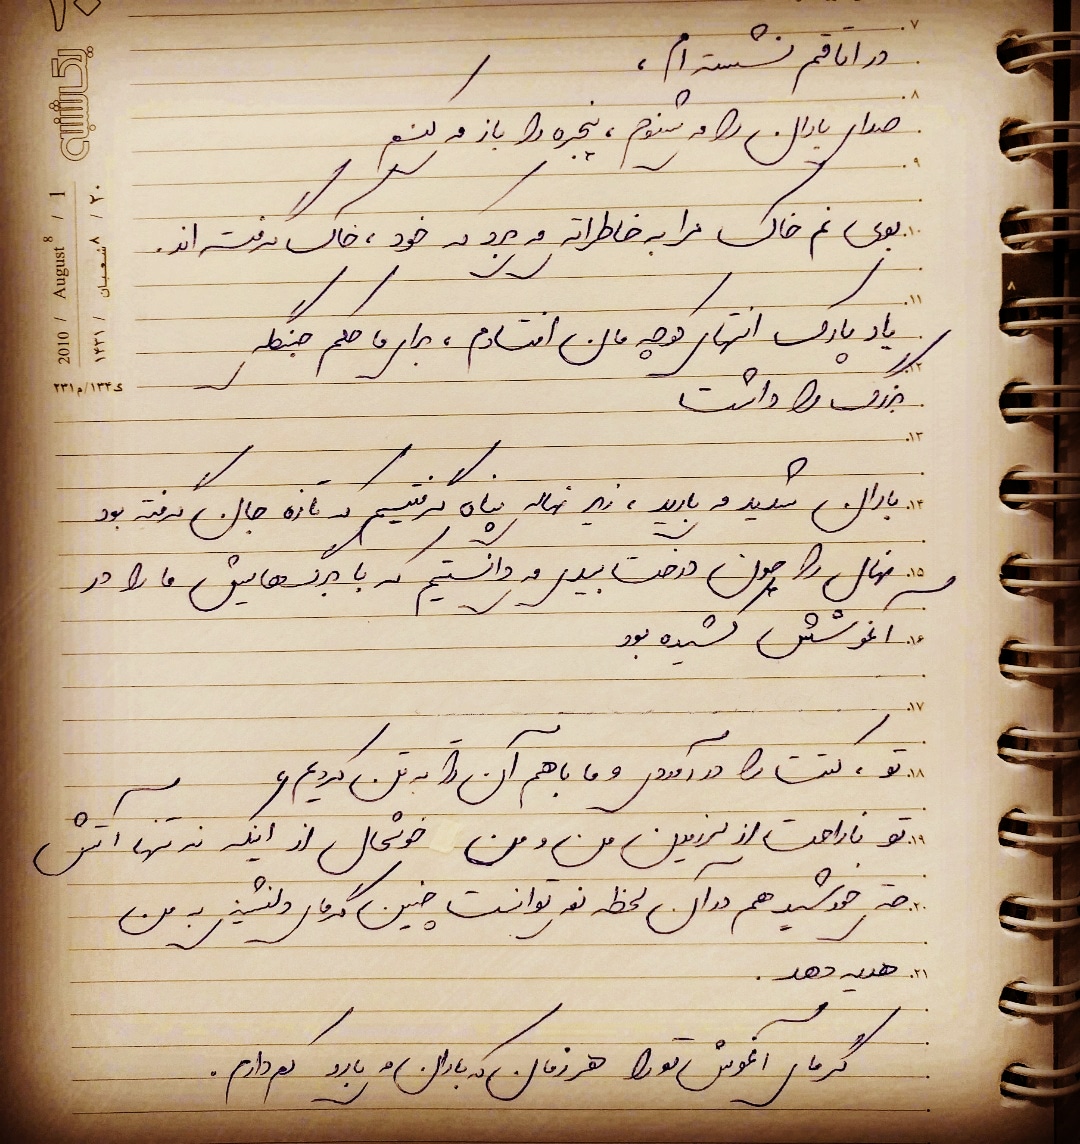 یکشنبه
2010 / August 8 / 1
۲۰ / شعبان ۸ / ۱۴۳۱
۷
در اتاقم نشسته ام ،
۸
صدای باران را می شنوم ، پنجره را باز می کنم
۹
۱۰ بوی نم خاک مرا به خاطراتی می برد که خود ، خاک گرفته اند .
۱۱
یاد پارک انتهای کوچه مان افتادم ، برای ما حکم جنگلی
۱۲
بزرگ را داشت
۱۳
۱۴ باران شدید می بارید ، زیر نهالی پناه گرفتیم که تازه جان گرفته بود
۱۵ نهال را چون درخت بیدی می دانستیم که با برگهایش ما را در
۱۶ آغوشش کشیده بود
۱۷
۱۸ تو ، کتت را درآوردی و ما باهم آن را به تن کردیم ،
۱۹ تو ناراحت از لرزیدن من و من خوشحال از اینکه نه تنها آتش
۲۰ حتی خورشید هم در آن لحظه نمی توانست چنین گرمای دلنشینی به من
۲۱ هدیه دهد .
گرمای آغوش تو را هر زمان که باران می بارد کم دارم .